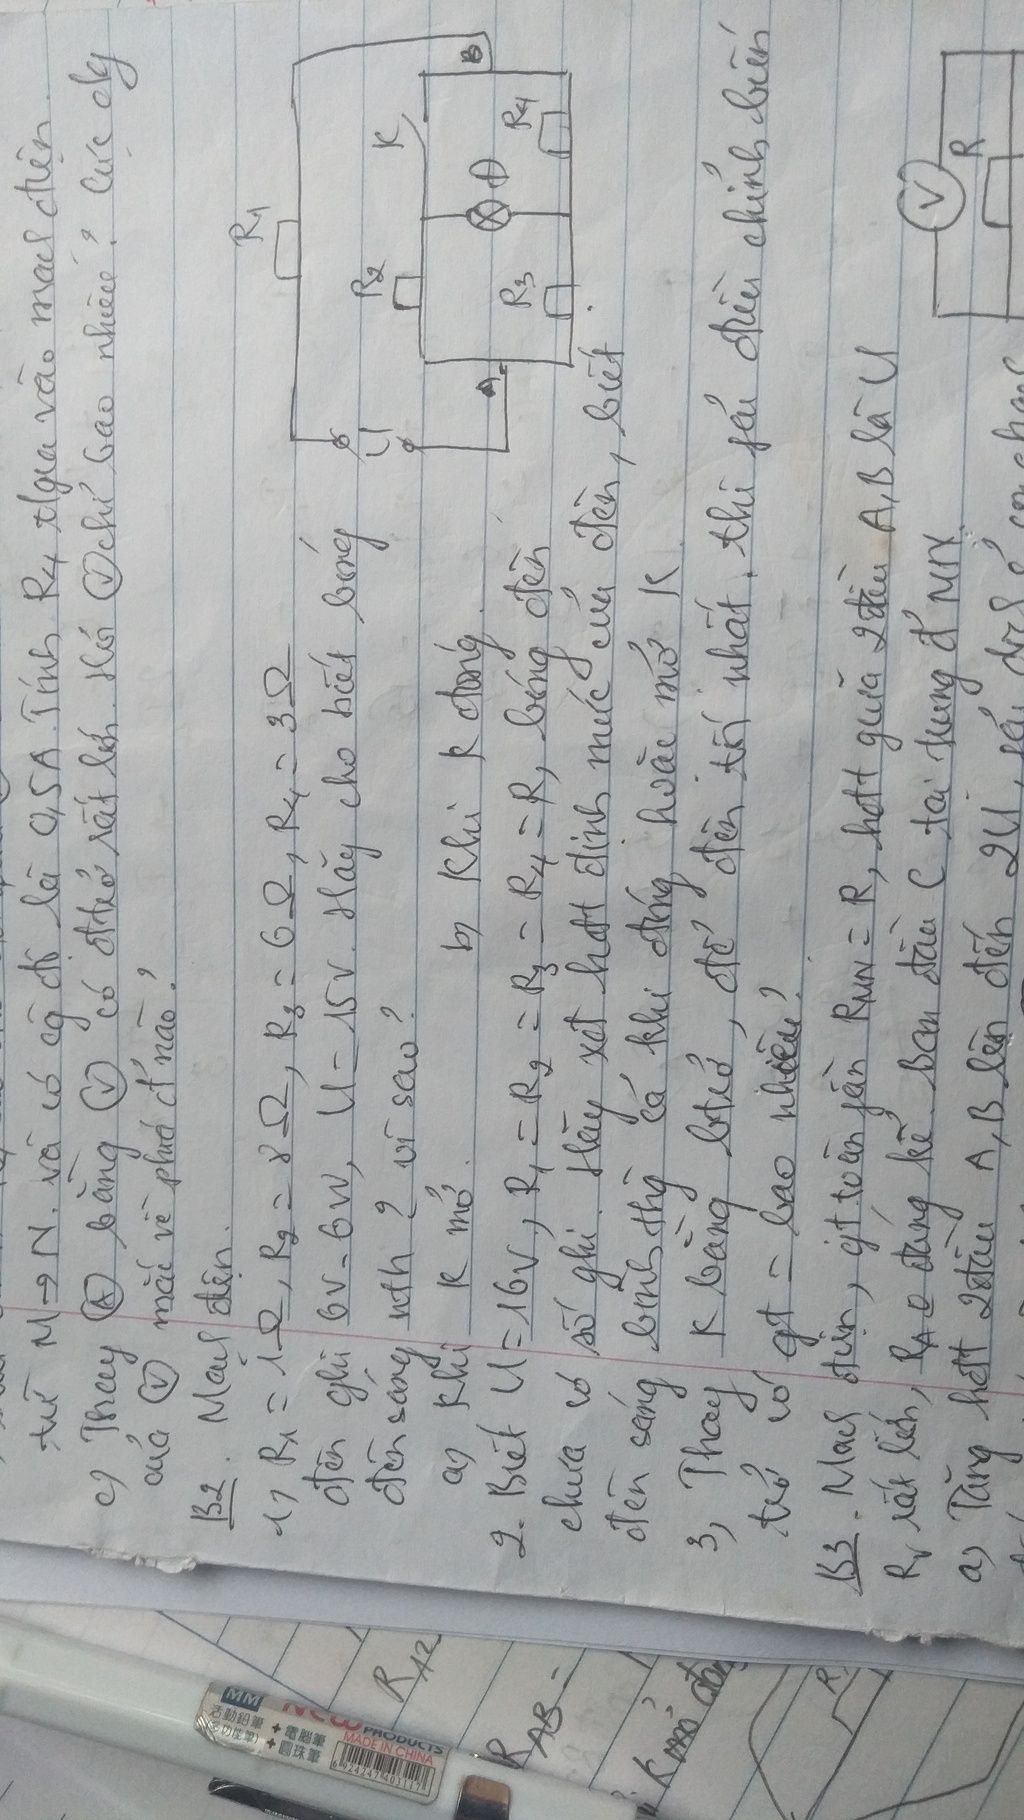 từ M → N. và có cđ dđ là 0,5A. Tính R4 tgia vào mạch điện.
c) Thay Ⓐ bằng Ⓥ có đtrở rất lớn. Hỏi Ⓥ chỉ bao nhiêu? cực dg
của Ⓥ mắc về phía đ' nào?
B2. Mạch điện.
1) R1 = 1Ω, R2 = 8Ω, R3 = 6Ω, R4 = 3Ω
đèn ghi 6V - 6W, U = 15V. Hãy cho biết bóng
đèn sáng ntn? vì sao?
a) Khi K mở. b) Khi K đóng.
2. Biết U = 16V, R1 = R2 = R3 = R4 = R, bóng đèn
chưa có số ghi. Hãy xđ hđt định mức của đèn, biết
đèn sáng bình thg cả khi đóng hoặc mở K
3, Thay K bằng btrở, để đèn tối nhất. thì fải điều chỉnh biến
trở có gt = bao nhiêu?
R1
R2
K
B
Đ
R3
R4
U
A
B3. Mạch điện, gt toàn fần RMN = R, hđt giữa 2 đầu A,B là U
Rv rất lớn, RA 0 đáng kể. ban đầu C tại trung đ' MN.
a) Tăng hđt 2 đầu A,B lên đến 2U,
V
R
R12
RAB =
K mở
MM
NEW
PRODUCTS
MADE IN CHINA
活動鉛筆
電腦筆
圓珠筆